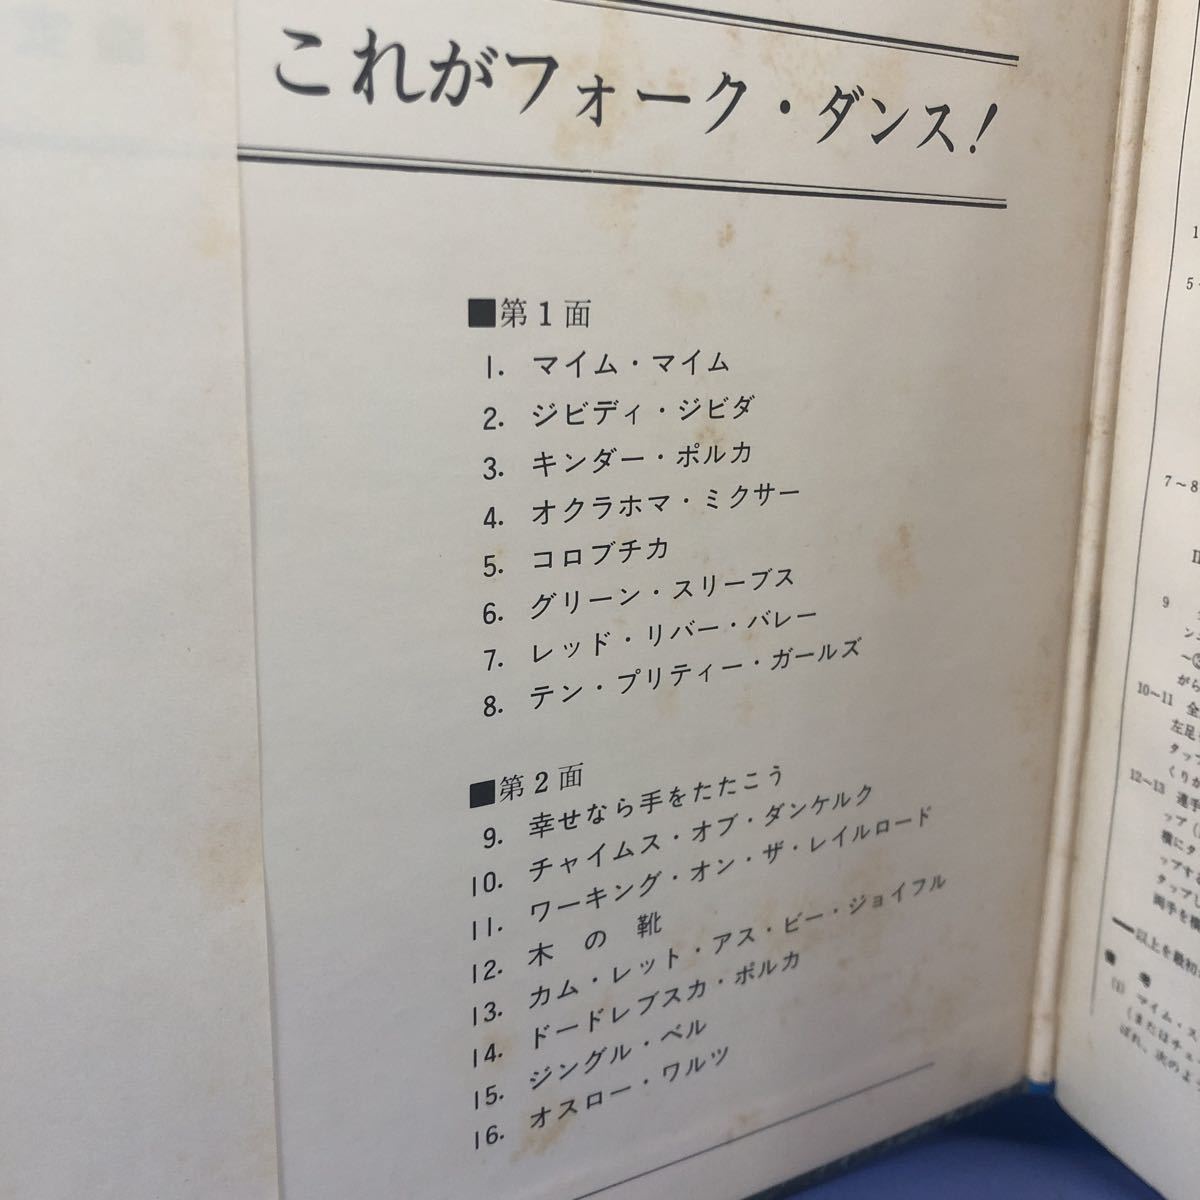 これがフォーク・ダンス!
■第1面
1. マイム・マイム
2. ジビディ・ジビダ
3. キンダー・ポルカ
4. オクラホマ・ミクサー
5. コロブチカ
6. グリーン・スリーブス
7. レッド・リバー・バレー
8. テン・プリティー・ガールズ
■第2面
9. 幸せなら手をたたこう
10. チャイムス・オブ・ダンケルク
11. ワーキング・オン・ザ・レイルロード
12. 木の靴
13. カム・レット・アス・ビー・ジョイフル
14. ドードレブスカ・ポルカ
15. ジングル・ベル
16. オスロー・ワルツ
1
5
7~8
II
9
ン
がら
10~11 全
左足
タップ
くりか
12~13 連手
ップ(
横にタ
ップする
タップし
両手を横
―以上を最初
備考
(1) マイム・ス
(またはチェ
ばれ、次のよ